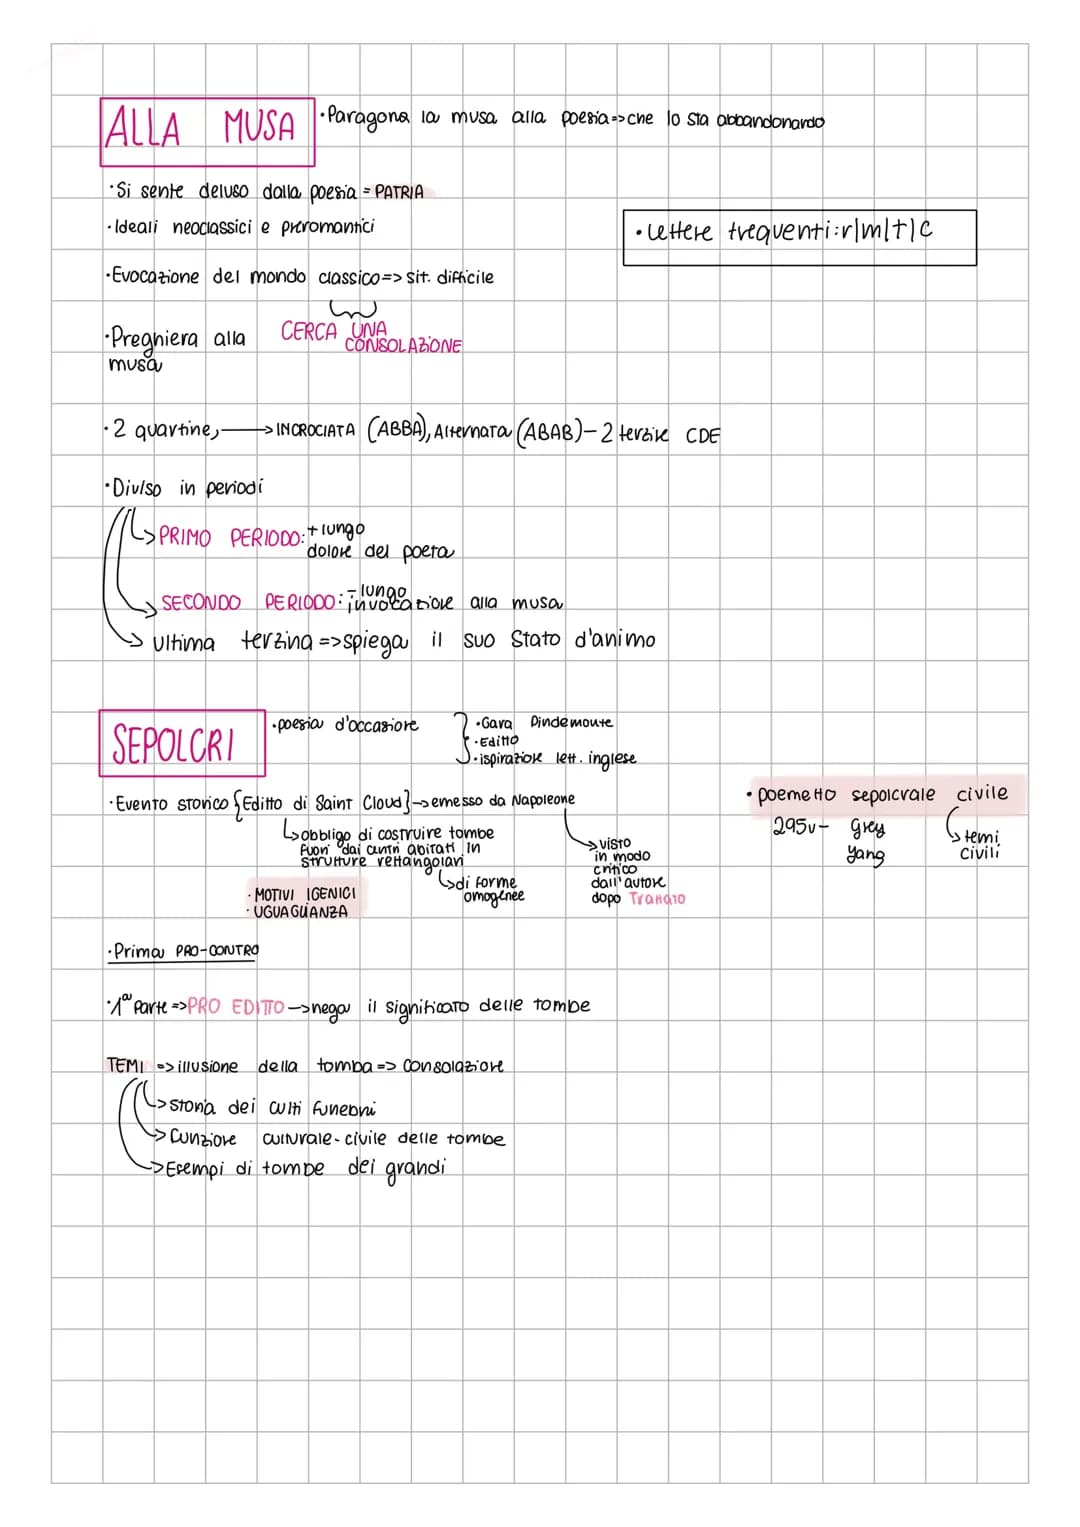 ALLA MUSA
·Paragona la musa alla poesia=>che lo sta abbandonando
·Si sente deluso dalla poesia = PATRIA
·Ideali neoclassici e preromantici
·Lettere frequenti:r|m|t|c
·Evocazione del mondo classico=> sit. difficile
CERCA UNA
CONSOLAZIONE
·Preghiera alla
musa
·2 quartine,→INCROCIATA (ABBA), Alternata (ABAB)-2 terzine CDE
·Diviso in periodi
↳PRIMO PERIODO:+ lungo
dolore del poeta
→SECONDO PERIODO:- lungo
invocazione alla musa
→ ultima terzina =>spiega il suo stato d'animo
SEPOLCRI
·poesia d'occasione
·Gara Pindemonte
·Editto
·ispirazione lett. inglese
·Evento storico {Editto di Saint Cloud}→emesso da Napoleone
↳obbligo di costruire tombe
fuori dai centri abitati in
strutture rettangolari
↳di forme
omogenee
→visto
in modo
critico
dall'autore
dopo Trattato
·MOTIVI IGENICI
·UGUAGLIANZA
·poemetto sepolcrale civile
295v- Grey
Yang
↳temi
civili
·Prima PRO-CONTRO
·1ª Parte =>PRO EDITTO→nega il significato delle tombe
TEMI =>illusione della tomba=> consolazione
↳storia dei culti funebri
→funzione culturale-civile delle tombe
→Esempi di tombe dei grandi